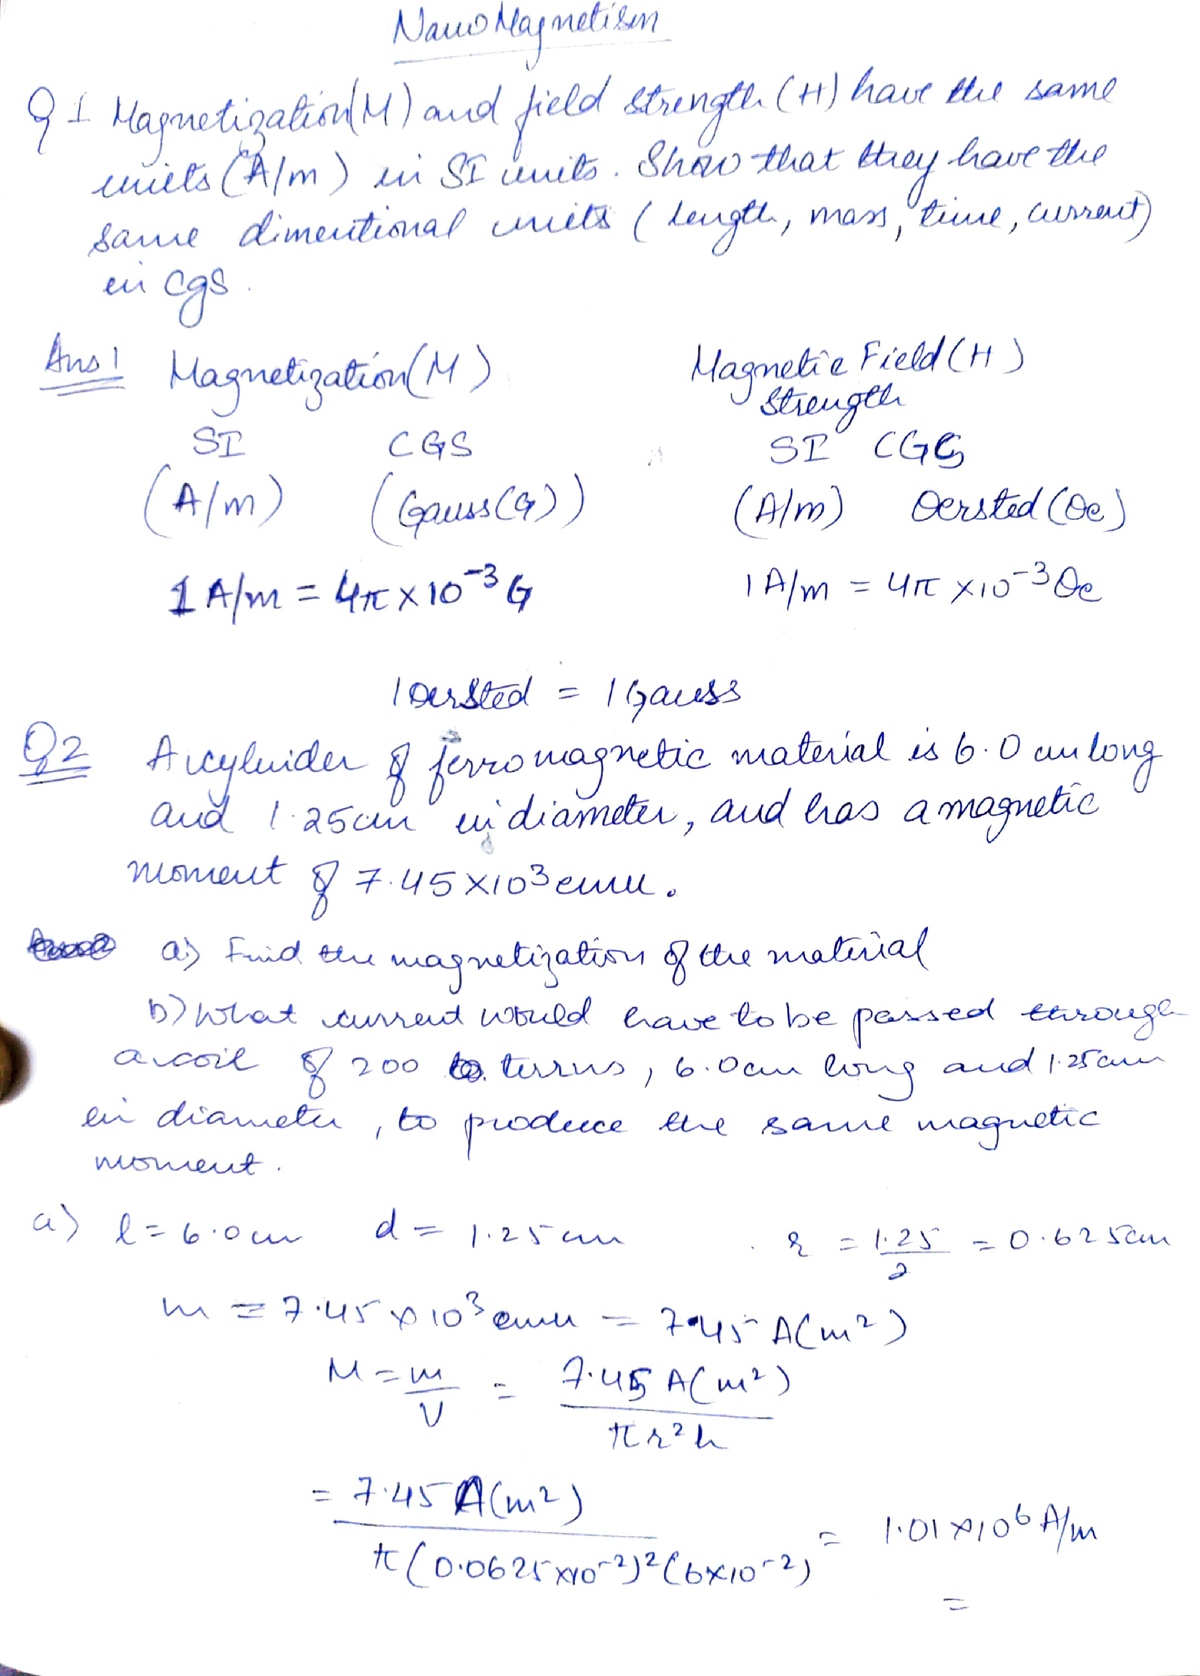 Nano Magnetism
Q 1 Magnetization(M) and field strength (H) have the same
units (A/m) in SI units. Show that they have the
same dimentional units (length, mass, time, current)
in cgs.
Ans 1 Magnetization(M) Magnetic Field(H)
Strength
SI CGS SI CGS
(A/m) (Gauss(G)) (A/m) Oersted(Oe)
1 A/m = 4π×10⁻³ G 1 A/m = 4π×10⁻³ Oe
1 Oersted = 1 Gauss
Q2 A cylinder of ferromagnetic material is 6.0 cm long
and 1.25cm in diameter, and has a magnetic
moment of 7.45×10³ emu.
a) Find the magnetization of the material
b) What current would have to be passed through
a coil of 200 turns, 6.0cm long and 1.25cm
in diameter, to produce the same magnetic
moment.
a) l = 6.0cm d = 1.25cm r = 1.25/2 = 0.625cm
m = 7.45×10³ emu = 7.45 A(m²)
M = m/V = 7.45 A(m²)/πr²h
= 7.45 A(m²)/π(0.0625×10⁻²)²(6×10⁻²) = 1.01×10⁶ A/m
=